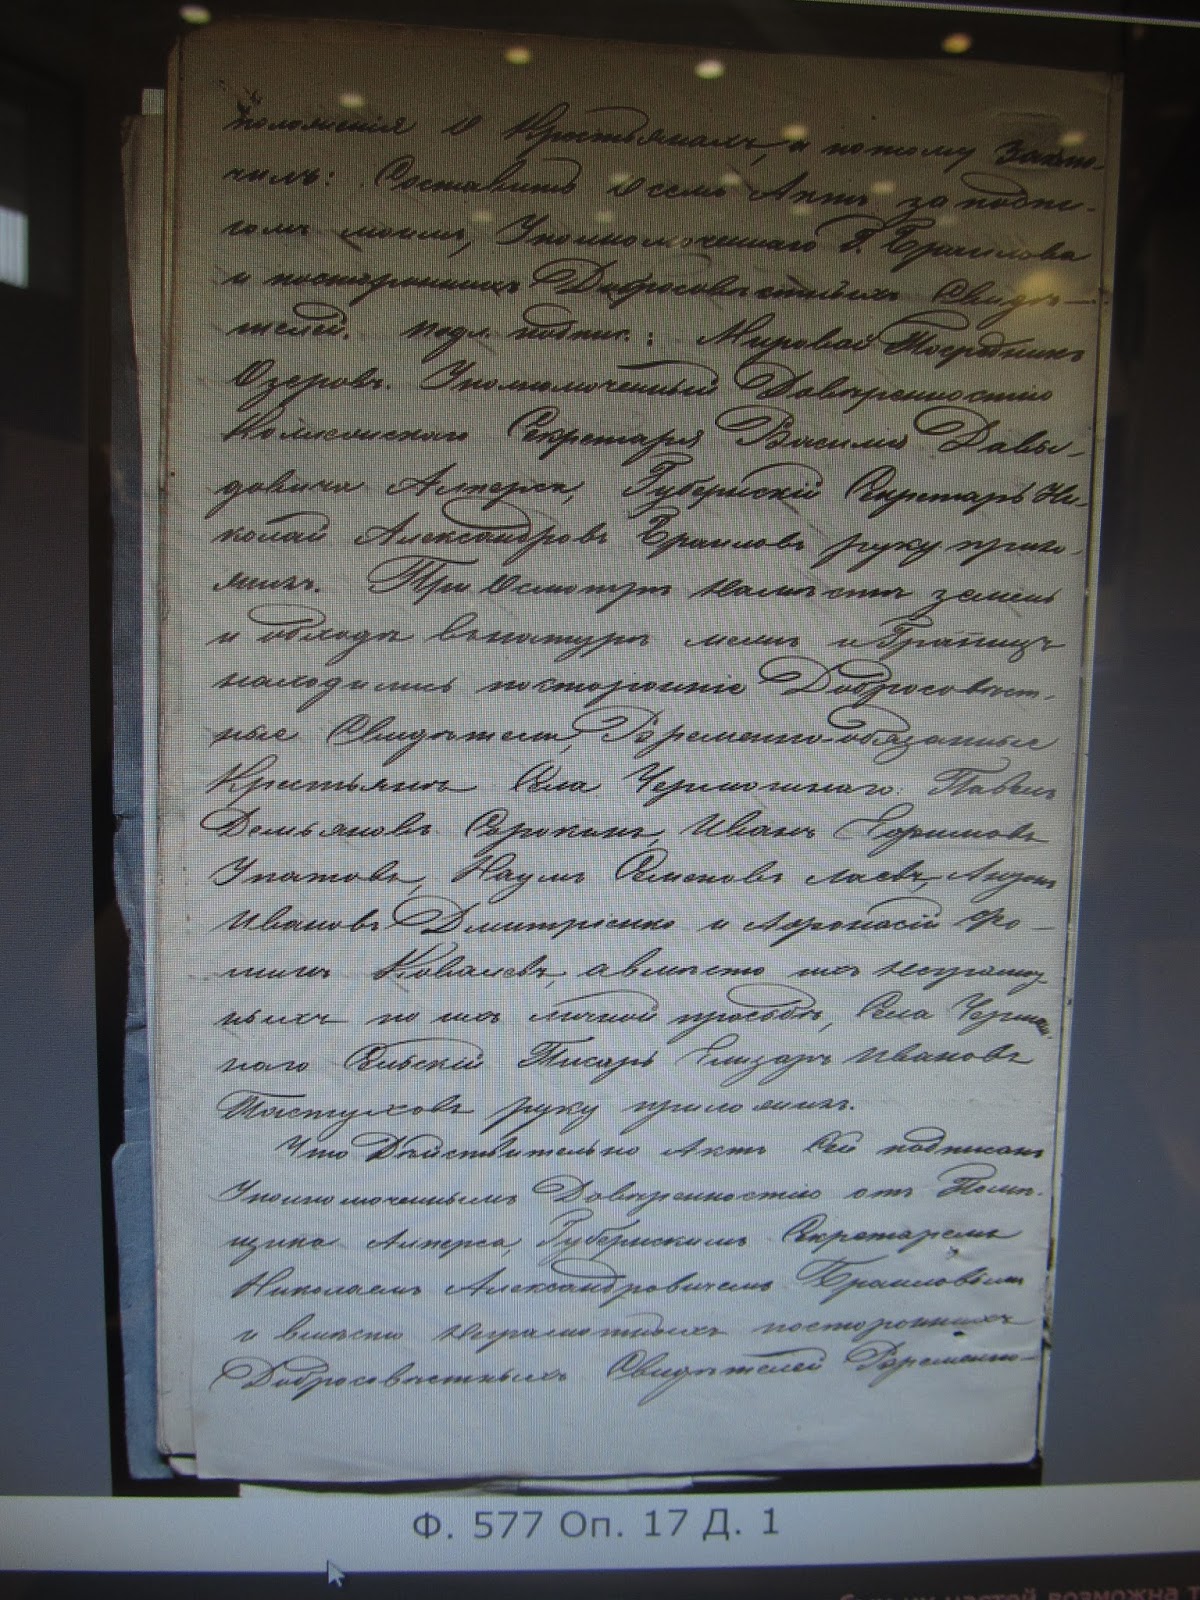 положенія о Крестьянахъ, а потому Заклю-
чилъ: Составить о семъ Актъ за подпи-
сомъ моимъ, Уполномоченнаго Г. Браилова
и постороннихъ Добросовѣстныхъ Свидѣ-
телей. подл. подпис.: Мировой Посредникъ
Озеровъ. Уполномоченный Довѣренностію
Коллежскаго Секретаря Василія Давы-
довича Алферса, Губернскій Секретарь Ни-
колай Александровъ Браиловъ руку прило-
жилъ. При осмотрѣ на мѣстѣ земель
и обходѣ въ натурѣ межъ и Границъ
находились посторонніе Добросовѣст-
ные Свидѣтели, Временно-обязанные
Крестьяне Села Чермошнаго: Павелъ
Демьяновъ Сорокинъ, Иванъ
Игнатовъ, Наумъ Семеновъ
Ивановъ Дмитріенко и Афонасій Фо-
минъ Ковалевъ, а вмѣсто ихъ неграмот
ныхъ по ихъ личной просьбѣ, Села Чермош
наго Сельскій Писарь Елизаръ Ивановъ
Пастуховъ руку приложилъ.
Что Дѣйствительно Актъ Сей подписанъ
Уполномоченнымъ Довѣренностію отъ Помѣ-
щика Алферса, Губернскимъ Секретаремъ
Николаемъ Александровичемъ Браиловымъ
и вмѣсто неграмотныхъ постороннихъ
Добросовѣстныхъ Свидѣтелей Временно-
Ф. 577 Оп. 17 Д. 1